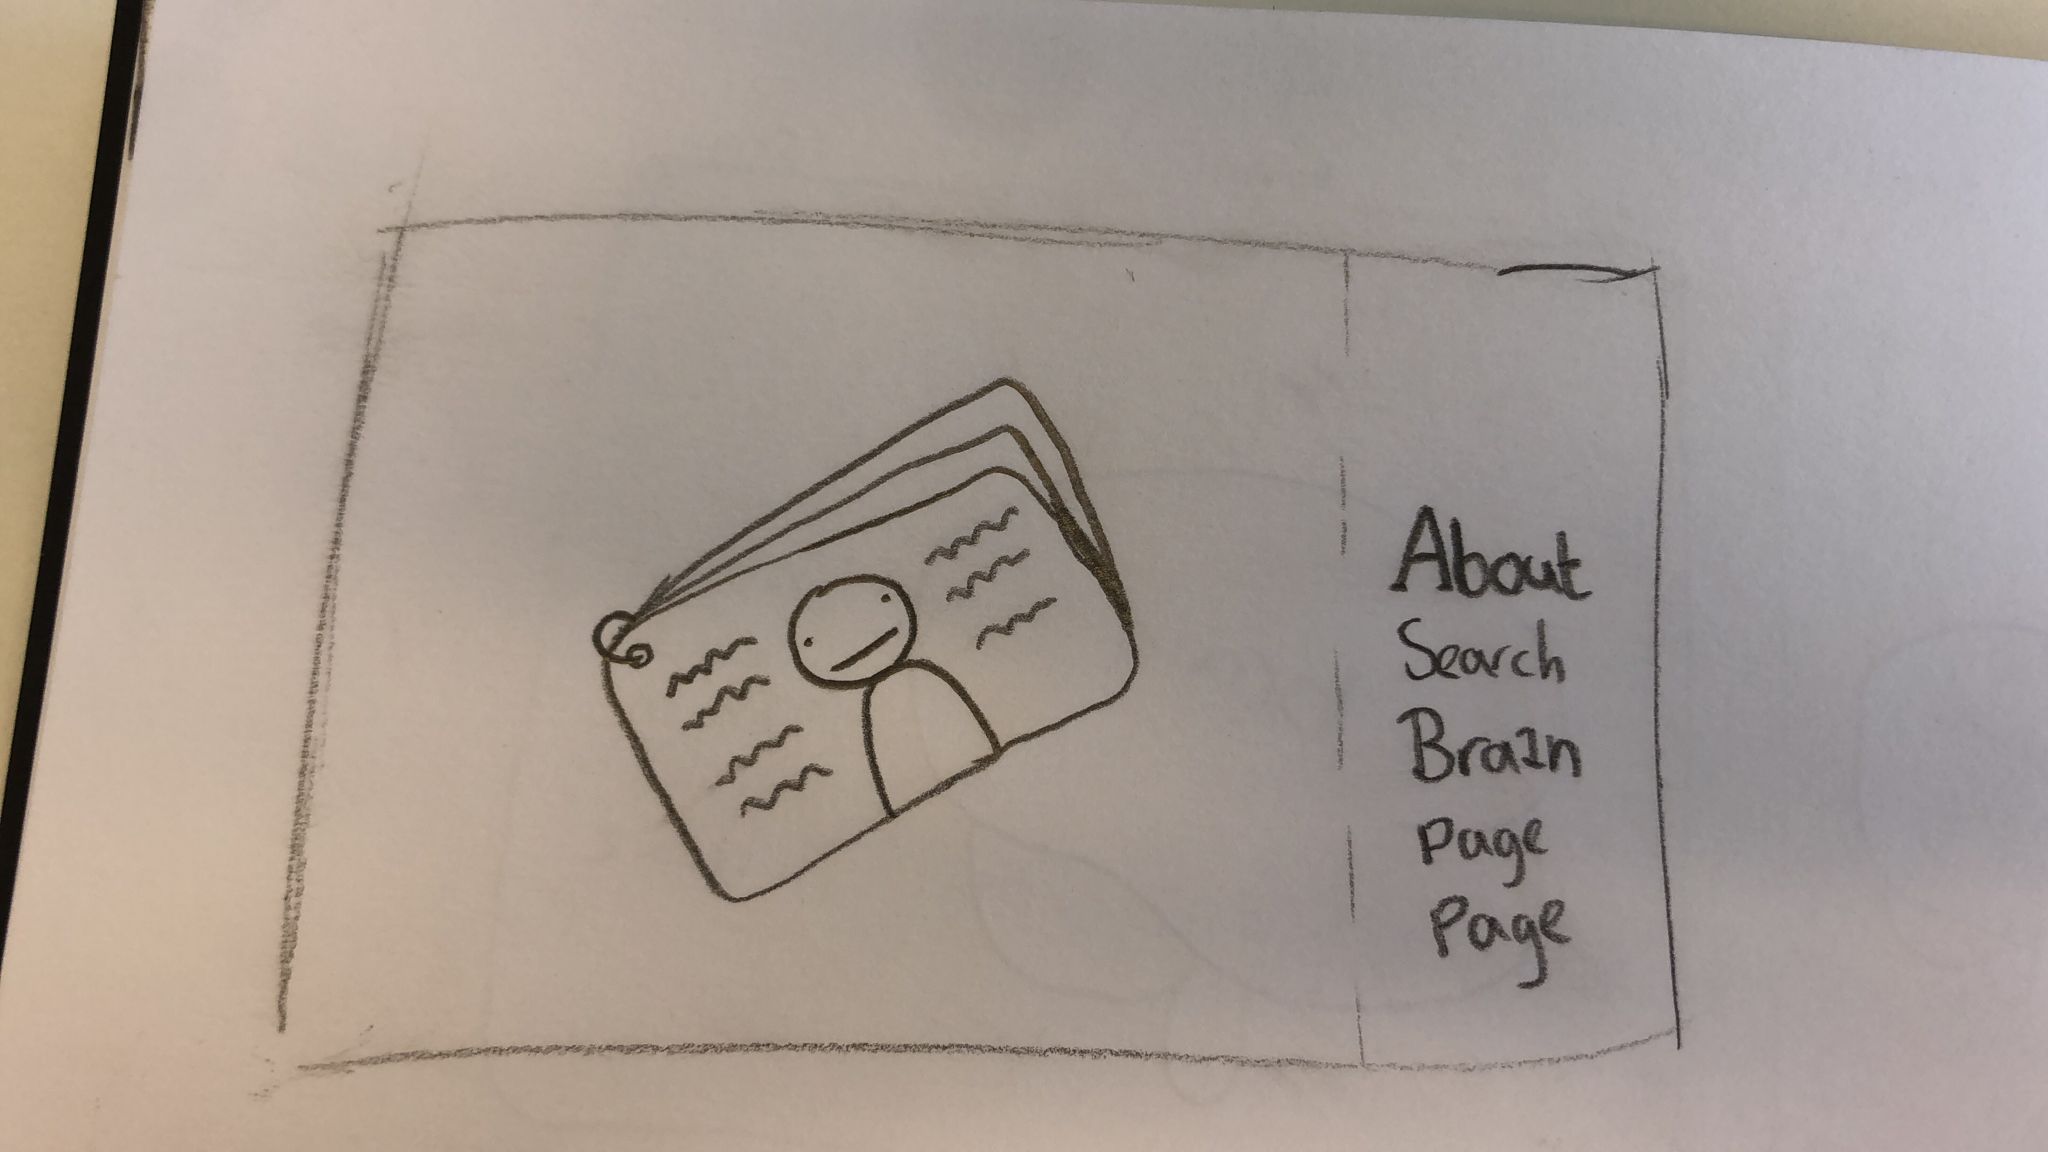 About
Search
Brain
Page
Page